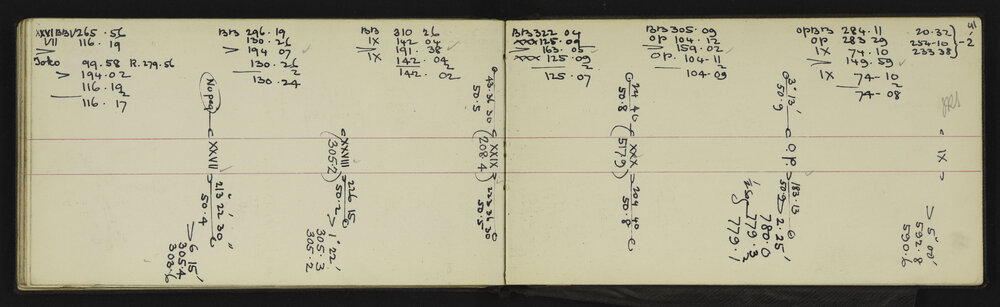 XXVI BB 1/265 . 56
VII 116 . 19
Joko 99.58 R. 279.56
> 194.02
116.19
2
116.17
BB 296.19
130.26
> 194 07
130.26
2
130.24
BB 310 26
IX 142 04
IX 191. 38
142. 04
2
142. 02
BB 322 04
XXX 125.09
> 163.05
XXX 125.09
2
125.07
BB 305.09
OP 104.12
> 159.02
OP. 104.11
2
104.09
OP BB 284.11
OP 283 29
IX 74.10
> 149.59
IX 74-10
2
74-08
20.32
254.10
233 38
-2
41
No peg
XXVII
213 22 30
50.4
6 15'
305.4
308.6
XXVIII
(305.2)
226 15
50.2
1° 22'
305.3
305.2
43 34 30
50.5
XXIX
(208.4)
223 34 30
50.5
24 40
50.8
XXX
(517.9)
204 40
50.8
3° 13'
50.9
OP
183.13
50.9
2.25'
780.0
779.3
2
779.1
IX
> 5° 00'
592.8
590.6